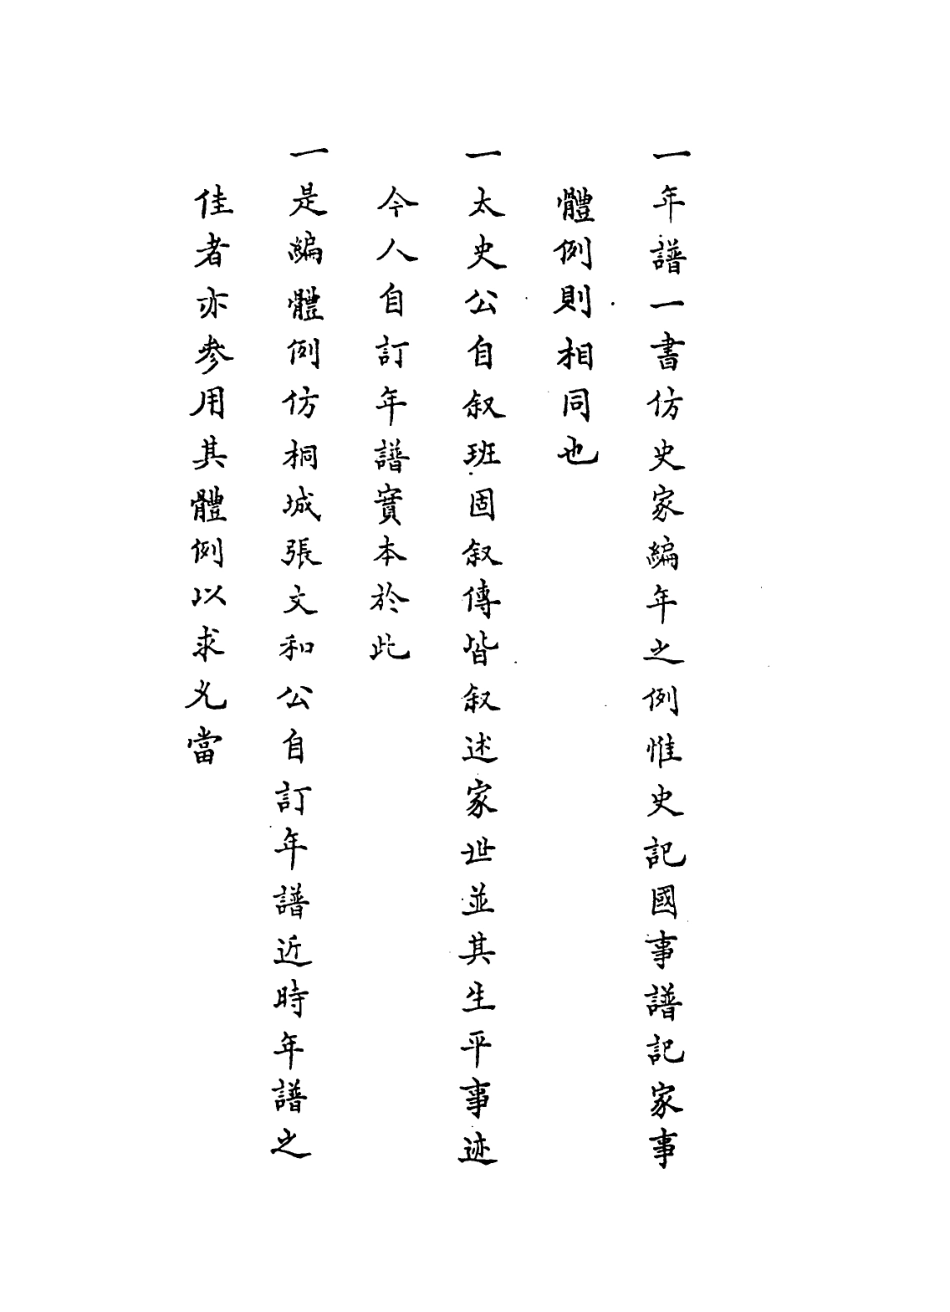 一年譜一書仿史家編年之例惟史記國事譜記家事
體例則相同也
一太史公自叙班固叙傳皆叙述家世並其生平事迹
今人自訂年譜實本於此
一是編體例仿桐城張文和公自訂年譜近時年譜之
佳者亦參用其體例以求允當